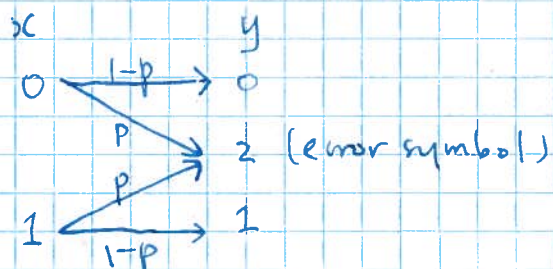 x y
0 1-p 0
p
2 (error symbol)
p
1 1-p 1